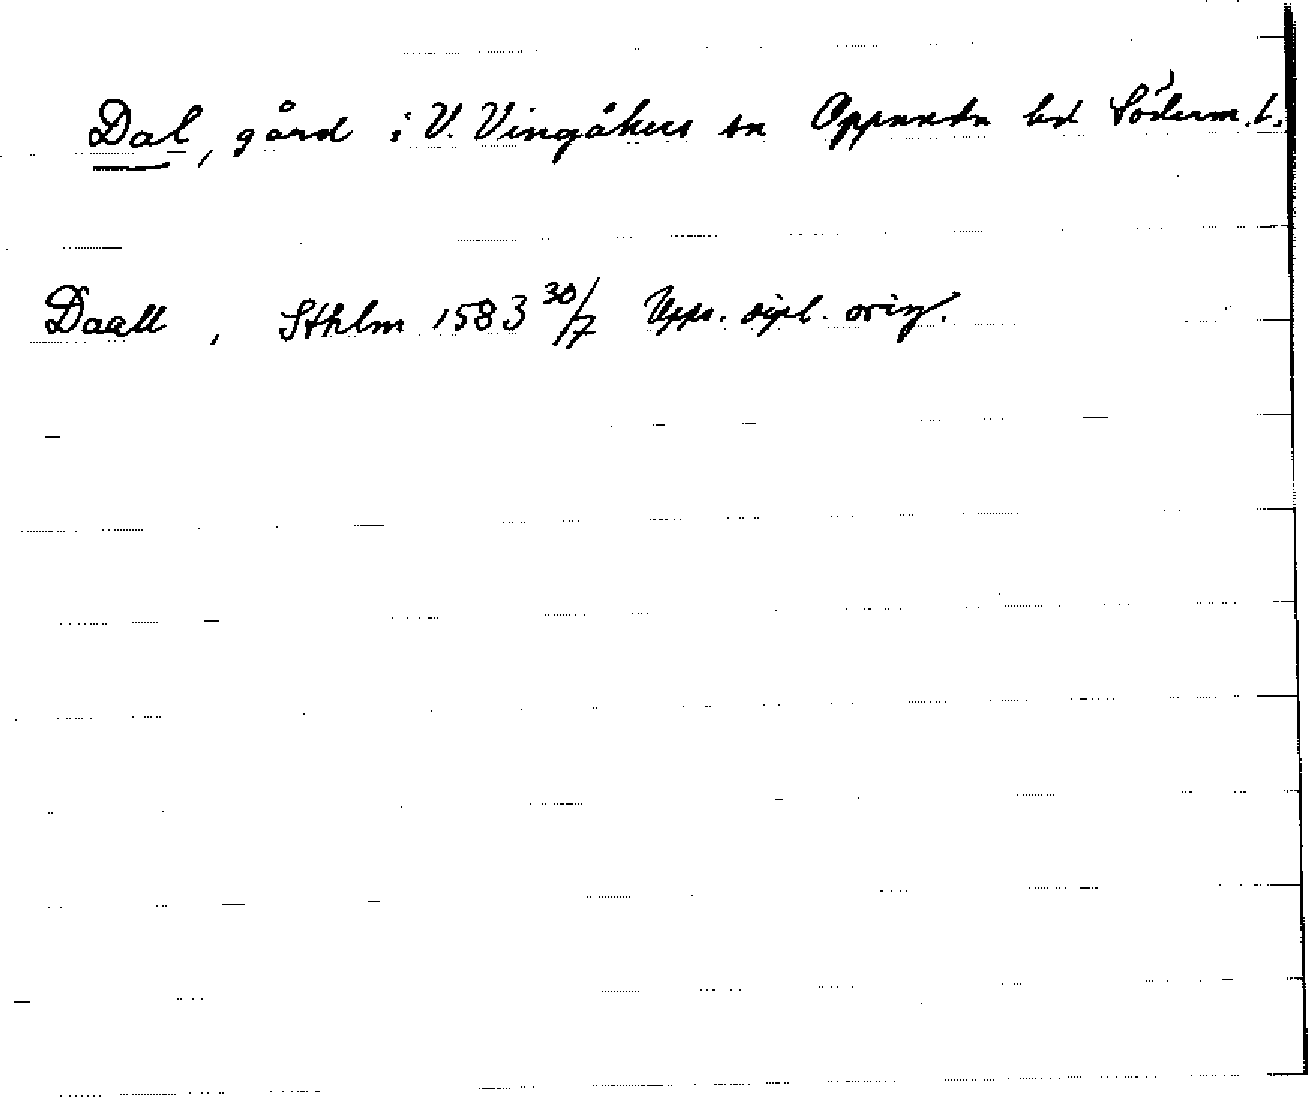 Dal, gård i V. Vingåkers sn Oppunda hd Söderm. l.
Daall, Sthlm 1583 30/7 Upps. dipl. orig.